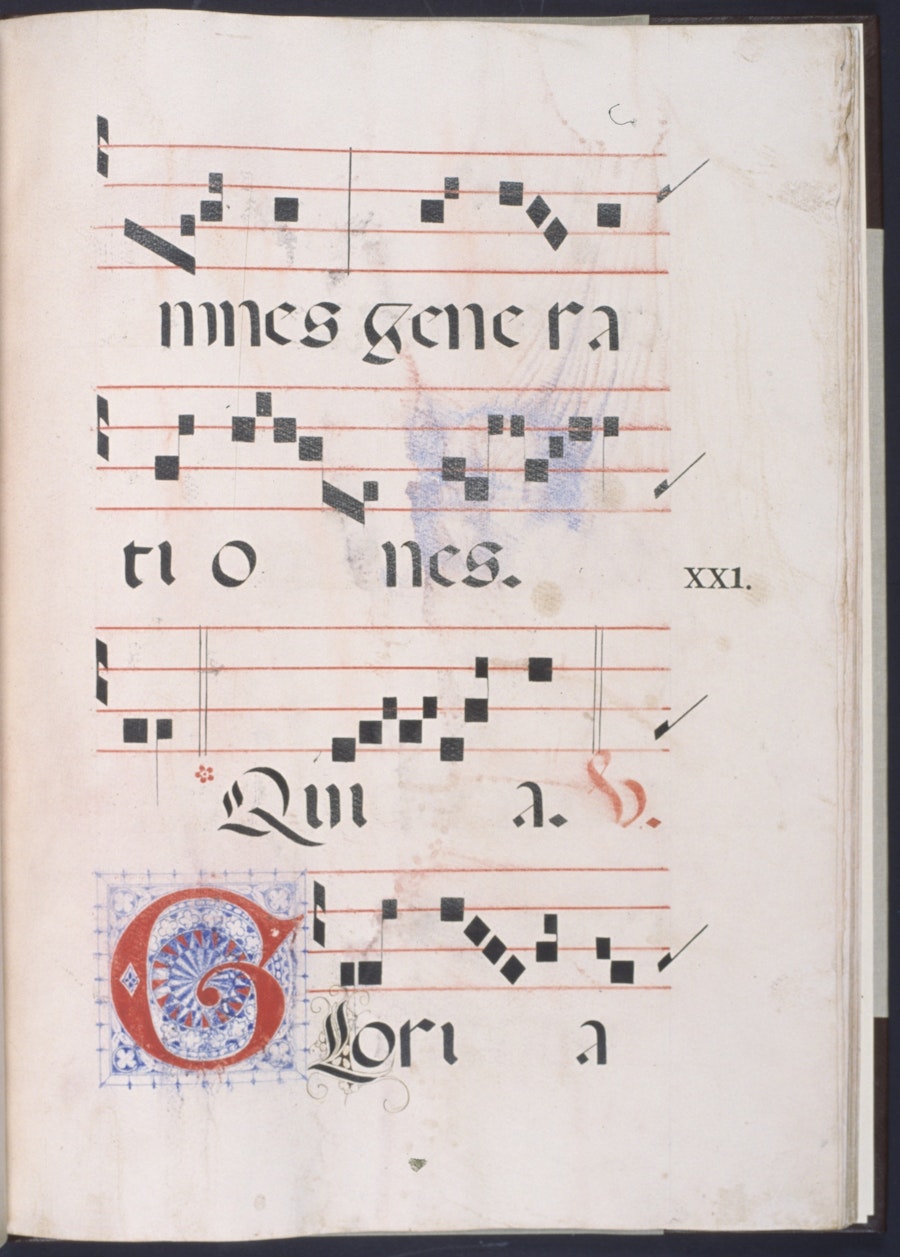 mnes genera
ti o nes.
XX1.
Qui a. V.
GLori a